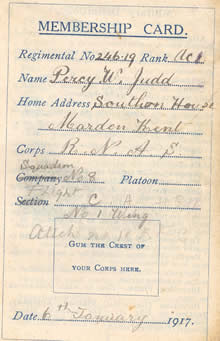 MEMBERSHIP CARD.
Regimental No 246-19 Rank
Name Percy W. Judd
Home Address Southon House
Marden Kent
Corps R. N. A. S
Squadron
Company No. 8 Platoon
Flight
Section C A
No 1 Wing
Attch
GUM THE CREST OF
YOUR CORPS HERE.
Date 6th January 1917.